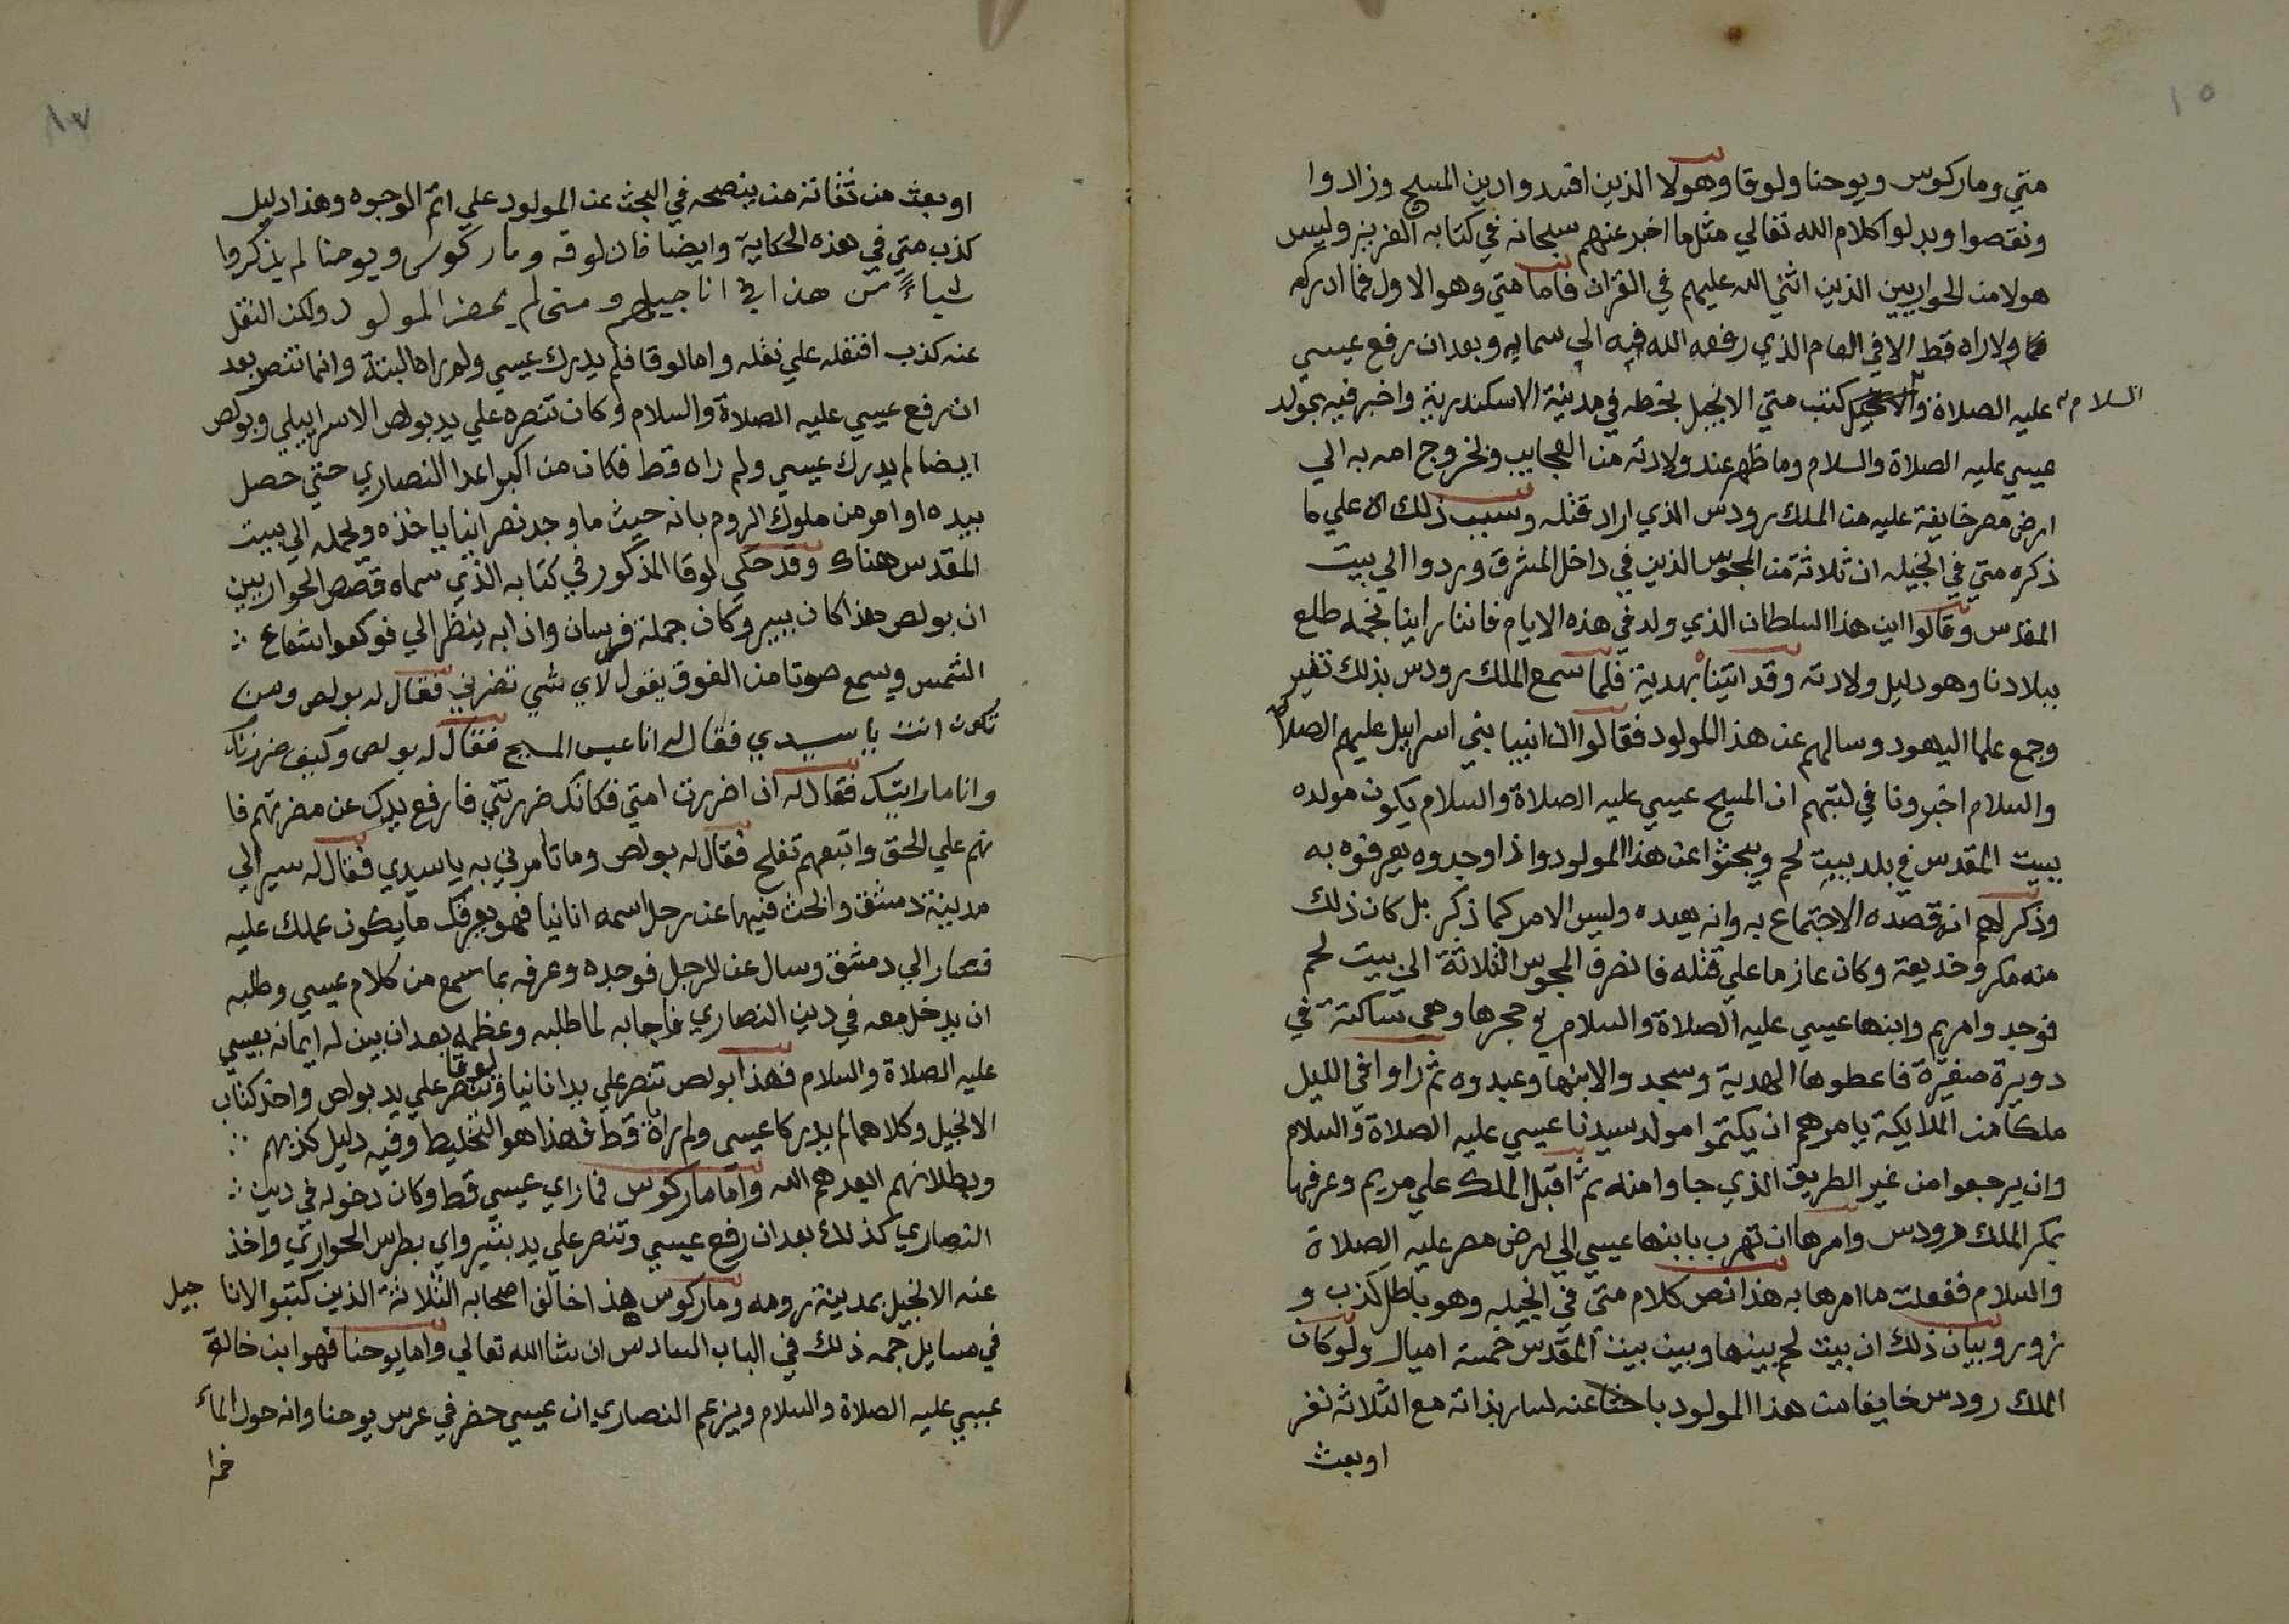 ١٥
متي وماركوس ويوحنا ولوقا وهولا الذين افسدوا دين المسيح وزادوا
ونقصوا وبدلوا كلام الله تعالي مثل ما اخبر عنهم سبحانه في كتابه العزيز وليس
هولا من الحواريين الذين اثني الله عليهم في القران فاما متي وهو الاول فما ادركه
ولا راه قط الا في العام الذي رفعه الله فيه الي سمايه وبعد ان رفع عيسي
عليه الصلاة والسلام كتب متي الانجيل بخطه في مدينة الاسكندرية واخبر فيه بمولد
عيسي عليه الصلاة والسلام وما ظهر عند ولادته من العجايب وبخروج امه به الي
ارض مصر خايفة عليه من الملك رودس الذي اراد قتله وسبب ذلك الا علي ما
ذكره متي في انجيله ان ثلاثة من المجوس الذين في داخل المشرق وردوا الي بيت
المقدس وقالوا اين هذا السلطان الذي ولد في هذه الايام فاننا راينا نجمه طلع
ببلادنا وهو دليل ولادته وقد اتيناه بهدية فلما سمع الملك رودس بذلك تغير
وجمع علما اليهود وسالهم عن هذا المولود فقالوا ان انبيا بني اسراييل عليهم الصلاة
والسلام اخبرونا في كتبهم ان المسيح عيسي عليه الصلاة والسلام يكون مولده
ببيت المقدس في بلد بيت لحم ويبحثوا عن هذا المولود واذا وجدوه يعرفوه به
وذكر لهم ان قصده الاجتماع به وانه يعبده وليس الامر كما ذكر بل كان ذلك
منه مكر وخديعة وكان عازما علي قتله فانصرف المجوس الثلاثة الي بيت لحم
فوجدوا مريم وابنها عيسي عليه الصلاة والسلام في حجرها وهي ساكنة في
دويرة صغيرة فاعطوها الهدية وسجدوا لابنها وعبدوه ثم راوا في الليل
ملكا من الملايكة يامرهم ان يكتموا مولد سيدنا عيسي عليه الصلاة والسلام
وان يرجعوا من غير الطريق الذي جاوا منه ثم اقبل الملك علي مريم وعرفها
بمكر الملك رودس وامرها ان تهرب بابنها عيسي الي ارض مصر عليه الصلاة
والسلام ففعلت ما امرها به هذا نص كلام متي في انجيله وهو باطل كذب و
زور وبيان ذلك ان بيت لحم بينها وبين بيت المقدس خمسة اميال ولو كان
الملك رودس خايفا من هذا المولود باحثا عنه لسار بذاته مع الثلاثة نفر
اوبعث
١٧
اوبعث من ثقاته من ينصحه في البحث عن المولود علي اتم الوجوه وهذا دليل
كذب متي في هذه الحكاية وايضا فان لوقه وماركوس ويوحنا لم يذكروا
شياءً من هذا في اناجيلهم ومتي لم يحضر المولود ولكن النقل
عنه كذب افتقله علي نقله واما لوقا فلم يدرك عيسي ولم يراه البتة وانما تنصر بعد
ان رفع عيسي عليه الصلاة والسلام وكان تنصره علي يد بولص الاسراييلي وبولص
ايضا لم يدرك عيسي ولم راه قط فكان من اكبر اعدا النصاري حتي حصل
بيده اوامر من ملوك الروم بانه حيث ما وجد نصرانيا ياخذه ويحمله الي بيت
المقدس هناك وقد حكي لوقا المذكور في كتابه الذي سماه قصص الحواريين
ان بولص هذا كان يسير وكان جملة فرسان واذا به ينظر الي ضوء كهو شعاع
الشمس ويسمع صوتا من الفوق يقول لاي شي تضرني فقال له بولص ومن
تكون انت يا سيدي فقال له انا عيسي المسيح فقال له بولص وكيف ضررتك
وانا ما رايتك فقال له ان اضررت امتي فكانك ضررتني فارفع يدك عن مضرتهم فا
نهم علي الحق واتبعهم تفلح فقال له بولص وما تامرني به يا سيدي فقال له سير الي
مدينة دمشق وابحث فيها عن رجل اسمه انانيا فهو يعرفك ما يكون عملك عليه
فصار الي دمشق وسال عن الرجل فوجده وعرفه بما سمع من كلام عيسي وطلبه
ان يدخل معه في دين النصاري فاجابه لما طلبه وعظمه بعد ان بين له ايمانه بعيسي
عليه الصلاة والسلام فهذا بولص تنصر علي يد انانيا ولوقا تنصر علي يد بولص واخذ كتاب
الانجيل وكلاهما لم يدركا عيسي ولم راه قط فهذا هو التخليط وفيه دليل كذبهم
وبطلانهم ابعدهم الله واما ماركوس فما راي عيسي قط وكان دخوله في دين
النصاري كذلك بعد ان رفع عيسي وتنصر علي يد بتيرو اي بطرس الحواري واخذ
عنه الانجيل بمدينة رومه وماركوس هذا خالف اصحابه الثلاثة الذين كتبوا الانا جيل
في مسايل جمه ذلك في الباب السادس ان شا الله تعالي واما يوحنا فهو ابن خالة
عيسي عليه الصلاة والسلام ويزعم النصاري ان عيسي حضر في عرس يوحنا وانه حول الماء
خمرا